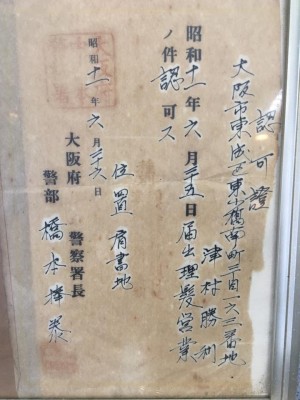 認可證
大阪市東成區東小橋南町二丁目一六三番地
津村勝利
昭和十一年六月二十五日届出理髪営業
ノ件認可ス
位置肩書地
昭和十一年六月二十六日
大阪府 警察署長
警部 橋本